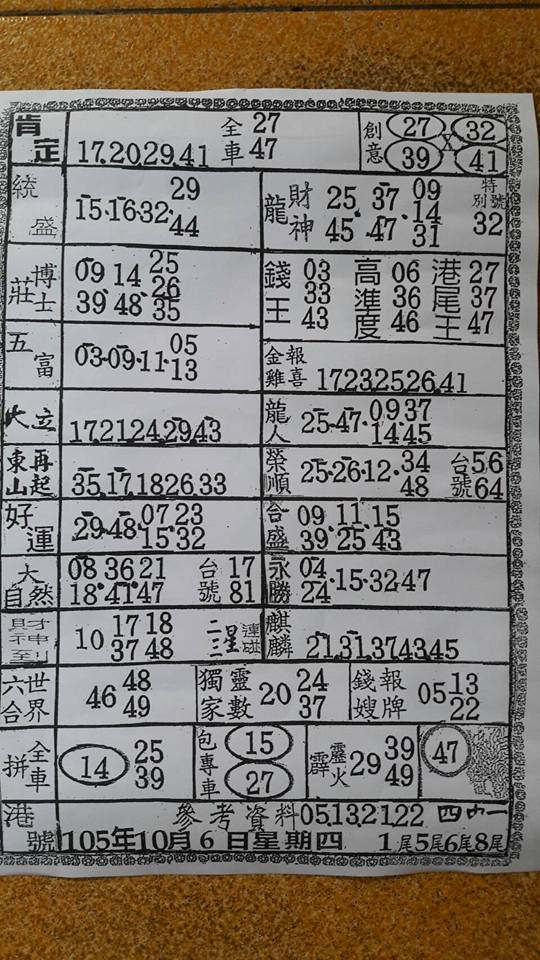 肯定 17.20.29.41 全車 27 47
創意 27 32 X 39 41
統盛 15.16.32. 29 44
龍 財神 25 37 09 特別號
45.47. 14 31 32
莊 博士 09 14 25
39 48 26 35
錢王 03 33 43 高準度 06 36 46 港尾王 27 37 47
五富 03.09.11. 05 13
金雞報喜 17.23.25.26.41
大立 17.21.24.29.43
龍人 25.47. 09 37
14 45
東山再起 35.17.18.26.33
榮順 25.26.12. 34 48 台號 56 64
好運 29.48. 07 23
15 32
合盛 09 11 15
39 25 43
大自然 08 36 21 台號 17
18 41 47 81
永勝 04 24 .15.32.47
財神到 10 17 18 二三星連碰
37 48
麒麟 21.31.37.43.45
六合世界 46 48 49
獨家靈數 20 24 37
錢嫂報牌 05 13 22
拼全車 14 25 39
包專車 15 27
霹靂火 29 39 49
47
港號 參考資料 05.13.21.22
105年10月6日星期四 1尾5尾6尾8尾